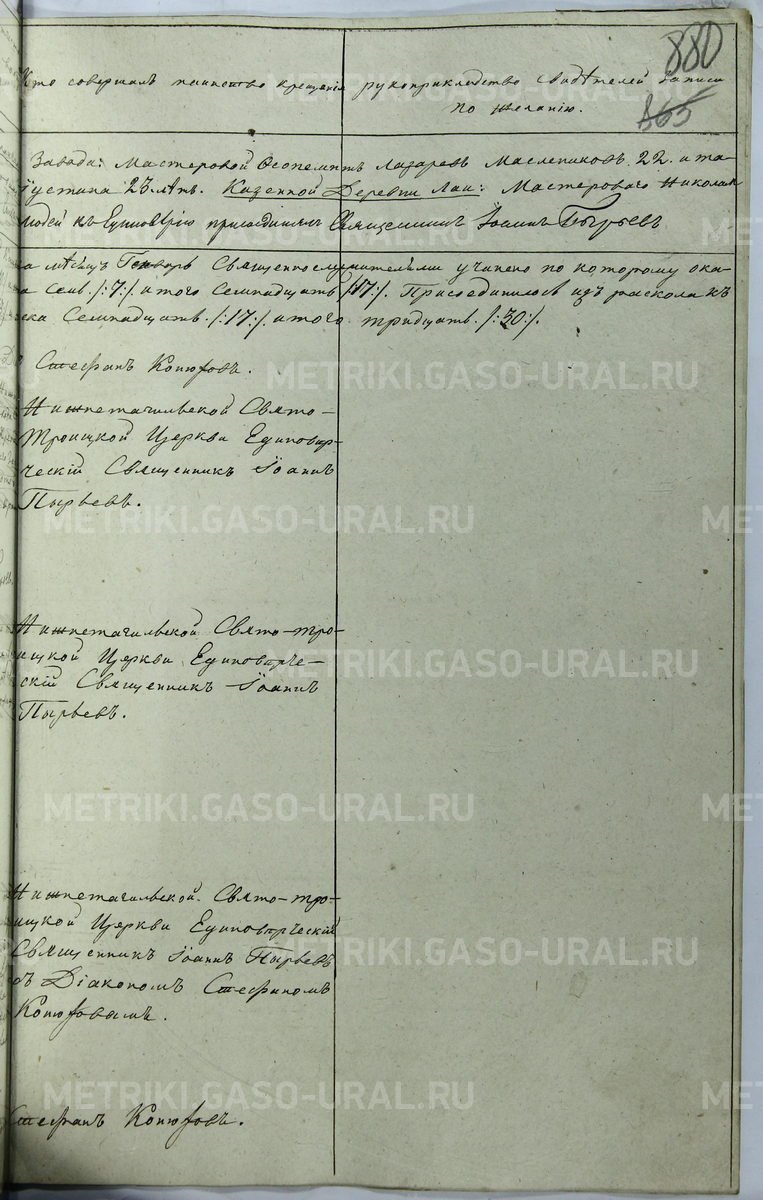 880
865
Кто совершалъ таинство крещенія рукоприкладство свидѣтелей записи
по желанію.
Завода: Мастеровой Лазаревъ Маслениковъ 22. и та-
23 лѣтъ. Казенной Деревни Лаи: Мастероваго Николая
людей къ Единовѣрію присоединялъ Священникъ Іоаннъ Пырьевъ
а мѣсяцъ Генварь Священнослужителями учинено по которому ока-
/:7:/ итого Семнадцать /:17:/. Присоединилось изъ раскола къ
ска Семнадцать /:17:/ итого тридцать /:30:/.
Стефанъ Конюховъ.
Нижнетагильской Свято-
Троицкой Церкви Единовѣр-
ческій Священникъ Іоаннъ
Пырьевъ.
Нижнетагильской Свято-Тро-
ицкой Церкви Единовѣрче-
скій Священникъ Іоаннъ
Пырьевъ.
Нижнетагильской Свято-Тро-
ицкой Церкви Единовѣрческій
Священникъ Іоаннъ Пырьевъ
съ Діакономъ Стефаномъ
Конюховымъ.
Стефанъ Конюховъ.
METRIKI.GASO-URAL.RU
METRIKI.GASO-URAL.RU
METRIKI.GASO-URAL.RU
METRIKI.GASO-URAL.RU
METRIKI.GASO-URAL.RU
METRIKI.GASO-URAL.RU
METRIKI.GASO-URAL.RU